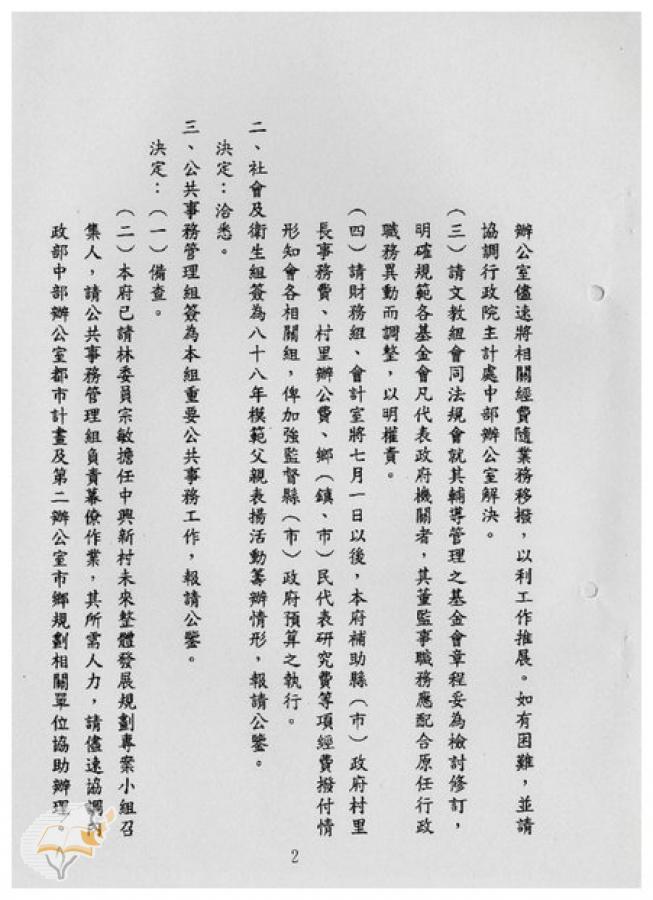 辦公室儘速將相關經費隨業務移撥，以利工作推展。如有困難，並請
協調行政院主計處中部辦公室解決。
（三）請文教組會同法規會就其輔導管理之基金會章程妥為檢討修訂，
明確規範各基金會凡代表政府機關者，其董監事職務應配合原任行政
職務異動而調整，以明權責。
（四）請財務組、會計室將七月一日以後，本府補助縣（市）政府村里
長事務費、村里辦公費、鄉（鎮、市）民代表研究費等項經費撥付情
形知會各相關組，俾加強監督縣（市）政府預算之執行。
二、社會及衛生組簽為八十八年模範父親表揚活動籌辦情形，報請公鑒。
決定：洽悉。
三、公共事務管理組簽為本組重要公共事務工作，報請公鑒。
決定：（一）備查。
（二）本府已請林委員宗敏擔任中興新村未來整體發展規劃專案小組召
集人，請公共事務管理組負責幕僚作業，其所需人力，請儘速協調內
政部中部辦公室都市計畫及第二辦公室市鄉規劃相關單位協助辦理。
2